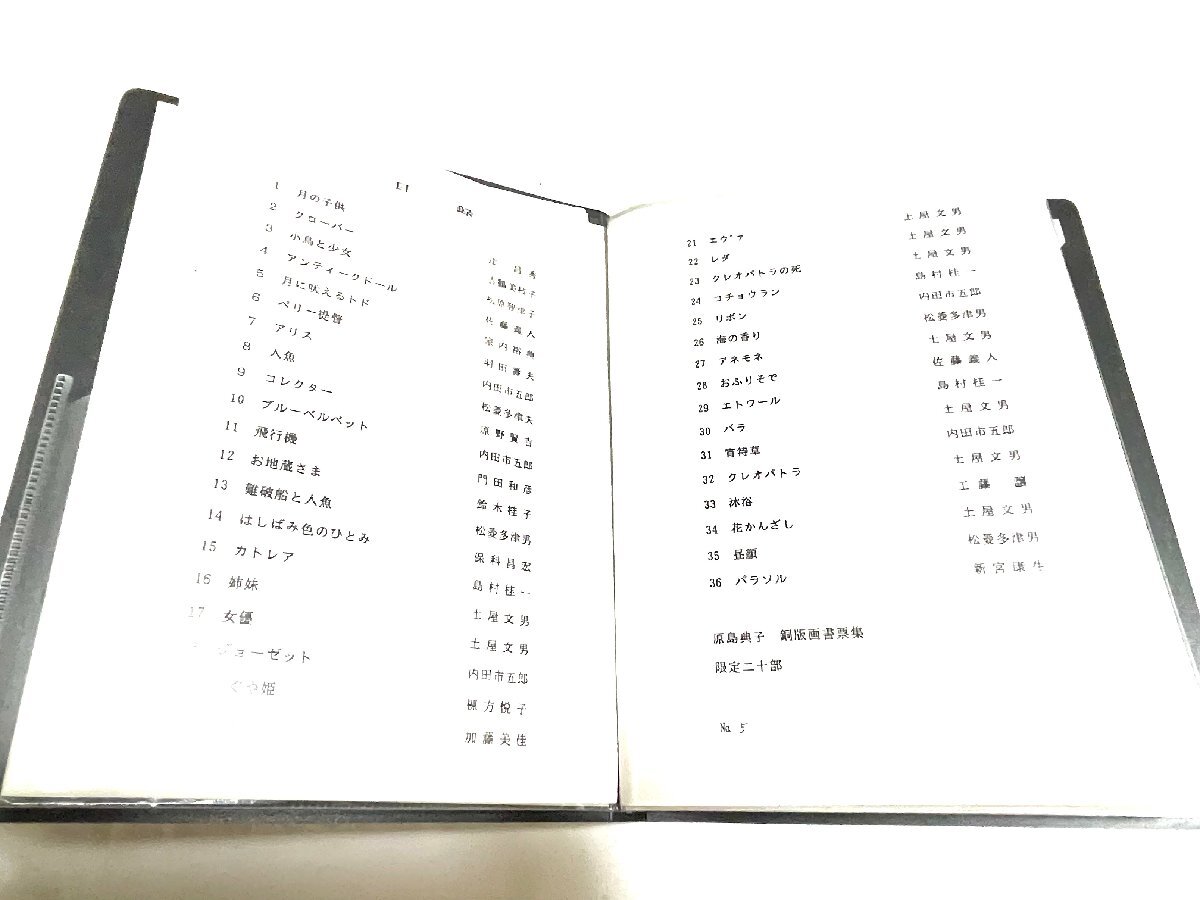 1 月の子供
2 クローバー
3 小鳥と少女
4 アンティークドール 佐藤義人
5 月に吠えるトド
6 ペリー提督 羽田壽夫
7 アリス 内田市五郎
8 人魚 松菱多津夫
9 コレクター 原野賢吉
10 ブルーベルベット 内田市五郎
11 飛行機 門田和彦
12 お地蔵さま 鈴木桂子
13 難破船と人魚 松菱多津男
14 はしばみ色のひとみ 保科昌宏
15 カトレア 島村桂一
16 姉妹 土屋文男
17 女優 土屋文男
ジョーゼット 内田市五郎
ぐや姫 棟方悦子
加藤美佳
21 エヴァ 土屋文男
22 レダ 土屋文男
23 クレオパトラの死 土屋文男
24 コチョウラン 島村桂一
25 リボン 内田市五郎
26 海の香り 松菱多津男
27 アネモネ 土屋文男
28 おふりそで 佐藤義人
29 エトワール 島村桂一
30 バラ 土屋文男
31 宵待草 内田市五郎
32 クレオパトラ 土屋文男
33 沐浴 工藤
34 花かんざし 土屋文男
35 昼顔 松菱多津男
36 パラソル
原島典子 銅版画書票集
限定二十部
No. 5